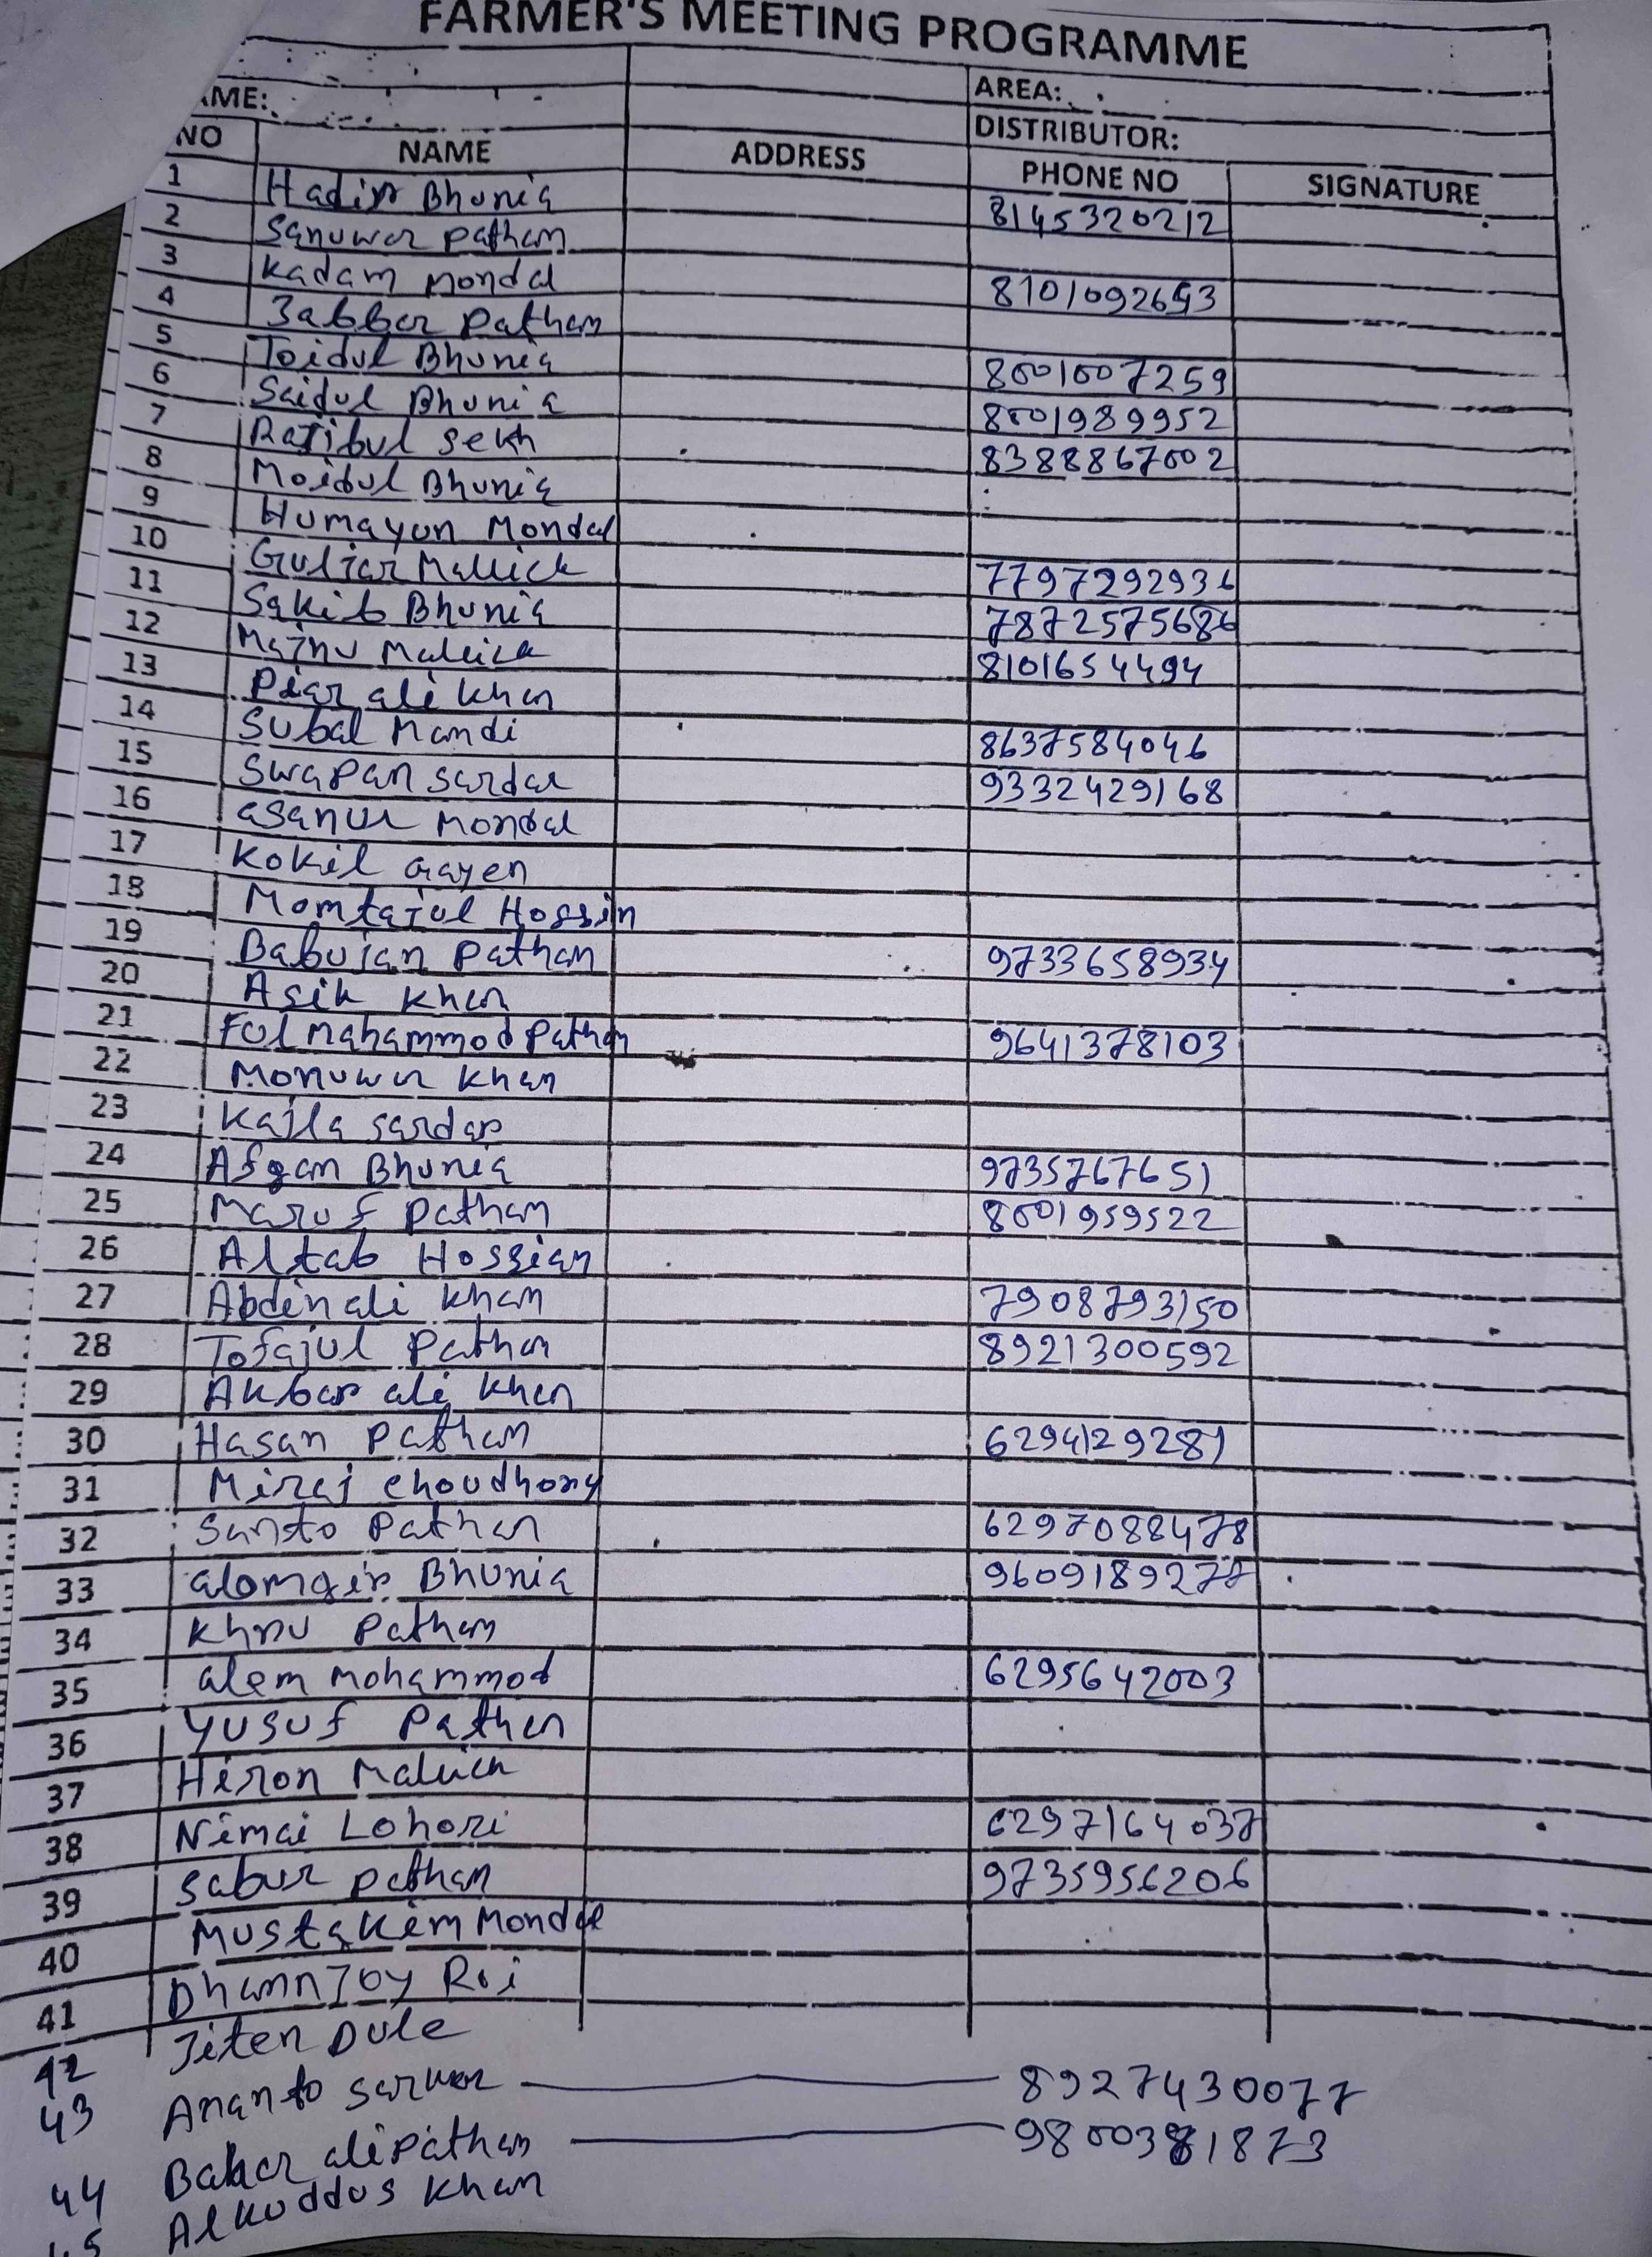 FARMER'S MEETING PROGRAMME
AME: AREA:
DISTRIBUTOR:
NO NAME ADDRESS PHONE NO SIGNATURE
1 Hadir Bhunia 8145320212
2 Sanuwar pathan
3 Kadam Mondal 8101092693
4 Jabbar Pathan
5 Toidul Bhunia 8001007259
6 Saidul Bhunia 8001989952
7 Rajibul Sekh 8388867002
8 Moidul Bhunia
9 Humayun Mondal
10 Guljar Mallick 7797292936
11 Sakib Bhunia 7872575686
12 Majnu Mallick 8101654494
13 Piar ali khan
14 Subal Mandi 8637584046
15 Swapan sardar 9332429168
16 asanur Mondal
17 Kokil Gayen
18 Momtajul Hossin
19 Babujan Pathan 9733658934
20 Asik Khan
21 Ful Mahammod Pathan 9641378103
22 Monuwar Khan
23 Kajla sardar
24 Afgan Bhunia 9735767651
25 Maruf Pathan 8001959522
26 Altab Hossian
27 Abden ali khan 7908793150
28 Tofajul Pathan 8921300592
29 Akbar ali khan
30 Hasan Pathan 6294129281
31 Miraj Choudhory
32 Santo Pathan 6297088478
33 alomgir Bhunia 9609189277
34 Khnu Pathan
35 alem Mohammod 6295642003
36 Yusuf Pathan
37 Hiron Mallick
38 Nimai Lohori 6297164037
39 Sabur Pathan 9735956206
40 Mustakim Mondal
41 DhannJoy Roi
42 Jiten Dule
43 Ananto Sarkar 8927430077
44 Bakar ali pathan 9800381873
45 Alkuddus Khan